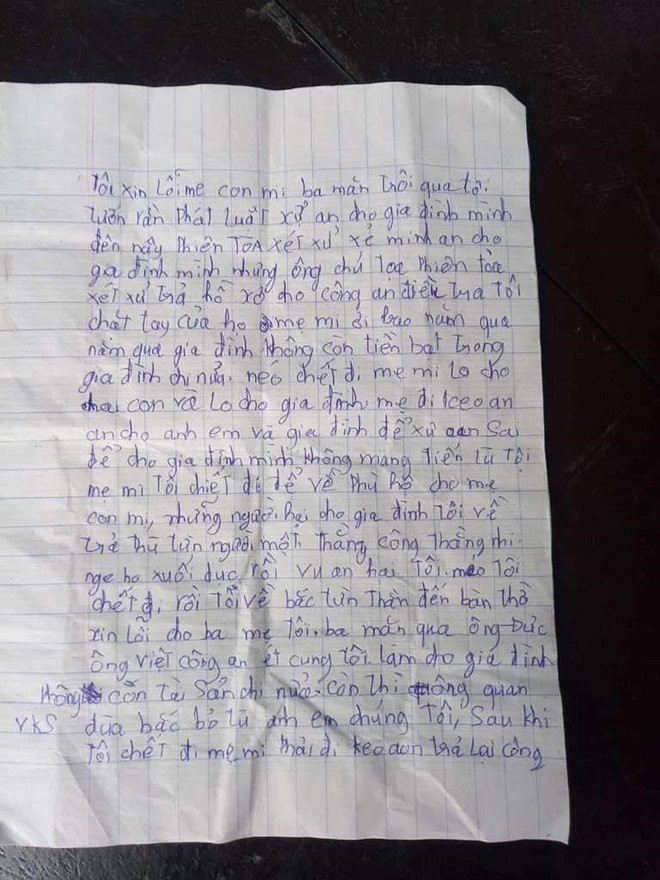 Tôi xin Lỗi mẹ con mi ba mắn trôi qua tôi
tuốn rằn Phát Luật xử an cho gia đình mình
đến nầy Phiên TOA XÉT XỬ xẻ minh an cho
gia đình mình nhưng ông chủ tọa Phiên tòa
XÉT xử trả hồ xơ cho công an điều tra Tôi
chất tay của họ mẹ mi ơi bao nam qua
năm qua gia đình không con tiền bạt trong
gia đình chi nửa. neó chết đi mẹ mi lo cho
hai con và Lo cho gia đình, mẹ đi keo an
an cho anh em và gia đình để xử oan Sai
để cho gia đình mình không mang tiến tù Tôi
me mi Tôi chiết đi để về Phù hộ cho mẹ
con mi, những người hại cho gia đình Tôi về
trả thù từn người một. thằng công thằng nhi
nge họ xuối dục, rồi vu an hai Tôi. neó Tôi
chết đi rồi Tôi về bắc từn thằn đến bàn thờ
xin lỗi cho ba mẹ Tôi. ba mắn qua ông Đức
ông việt công an ét cung tôi làm cho gia đình
không còn tà Sản chi nửa. còn thì ông quan
VKS dùa bắc bỏ tù anh em chúng Tôi, Sau khi
Tôi chết đi mẹ mi thải đi keo oan trả lại công